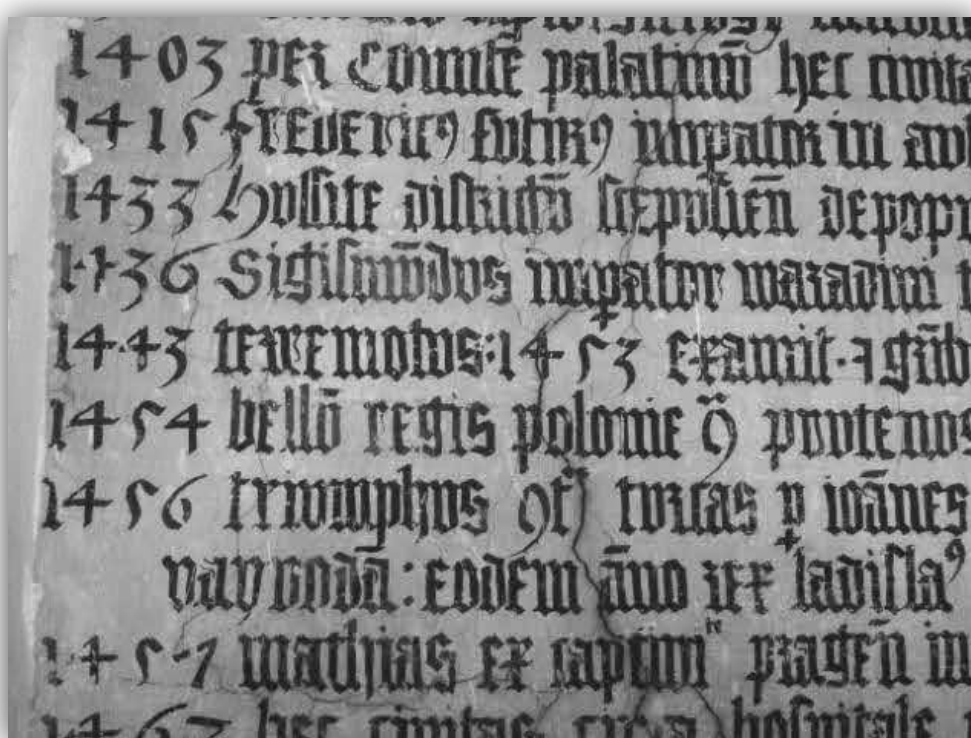 1403 per Comitē palatinū hec civita
1415 frēdericꝰ futurꝰ imꝑator in au
1433 Hussite districtū scepusien̄ depopu
1436 Sigismūdus imꝑator waradini
1443 terremotus: 1453 examit. ⁊ grūb
1454 bellū regis polonie prutenos
1456 triumphus ꝯt̄ turcas ꝑ ioānes
vayvodā: eodem āno rex ladislaꝰ
1457 mathias ex captivitate pragen̄ in
1467 hec civitas circa hospitale